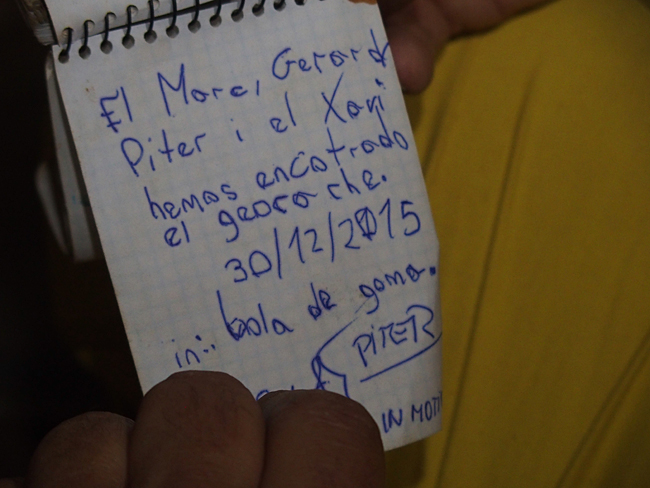 El Marc, Gerard
Piter i el Xavi
hemos encotrado
el geocache.
30/12/2015
in: bola de goma.
PITER
IN MOTI